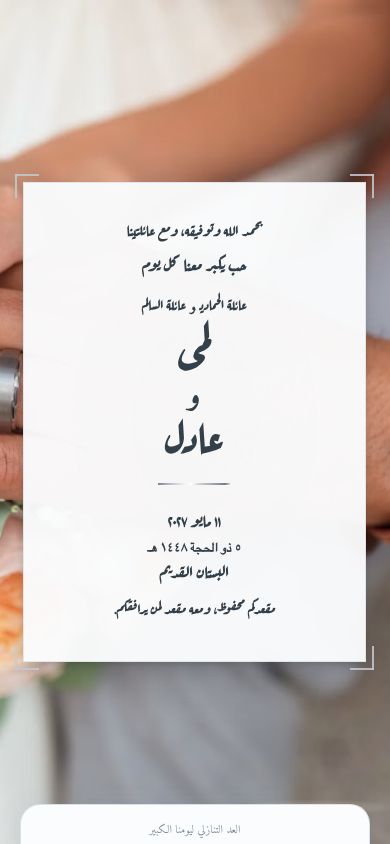 بحمد الله وتوفيقه، ومع عائلتينا
حب يكبر معنا كل يوم
عائلة الحمادي و عائلة السالم
لمى
و
عادل
١١ مايو ٢٠٢٧
٥ ذو الحجة ١٤٤٨ هـ
البستان القديم
مقعدكم محفوظ، ومعه مقعد لمن يرافقكم.
العد التنازلي ليومنا الكبير